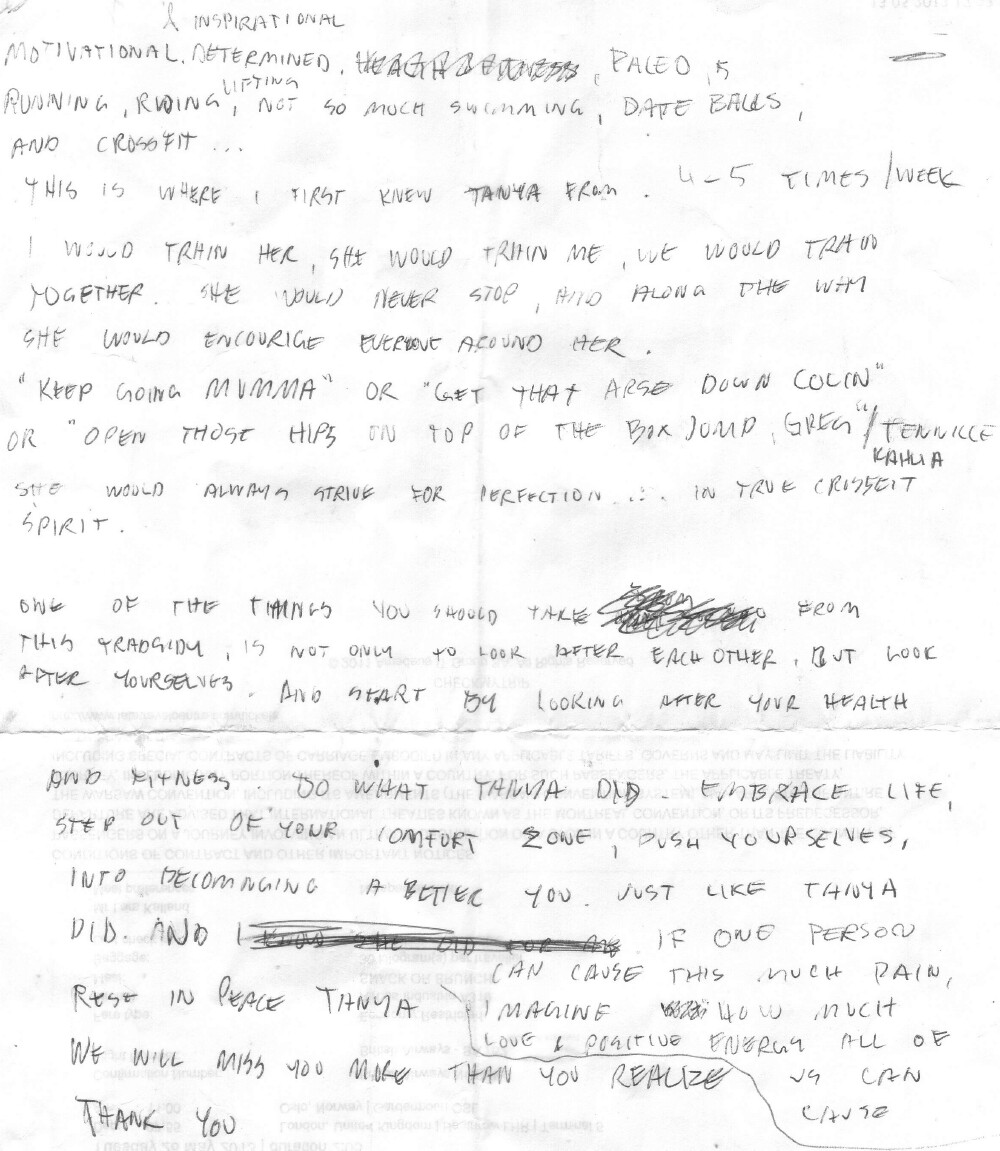 & INSPIRATIONAL
MOTIVATIONAL, DETERMINED, HEALTH & FITNESS, PALEO,
LIFTING
RUNNING, RIDING, NOT SO MUCH SWIMMING, DATE BALLS,
AND CROSSFIT ...
THIS IS WHERE I FIRST KNEW TANYA FROM. 4-5 TIMES/WEEK
I WOULD TRAIN HER, SHE WOULD TRAIN ME, WE WOULD TRAIN
TOGETHER. SHE WOULD NEVER STOP, AND ALONG THE WAY
SHE WOULD ENCOURIGE EVERYONE AROUND HER.
"KEEP GOING MUMMA" OR "GET THAT ARSE DOWN COLIN"
OR "OPEN THOSE HIPS ON TOP OF THE BOX JUMP, GREG"/TENNILLE
KAHLIA
SHE WOULD ALWAYS STRIVE FOR PERFECTION .... IN TRUE CROSSFIT
SPIRIT.
ONE OF THE THINGS YOU SHOULD TAKE FROM
THIS TRADGIDY, IS NOT ONLY TO LOOK AFTER EACH OTHER, BUT LOOK
AFTER YOURSELVES. AND START BY LOOKING AFTER YOUR HEALTH
AND FITNESS. DO WHAT TANYA DID. EMBRACE LIFE,
STEP OUT OF YOUR COMFORT ZONE, PUSH YOURSELVES,
INTO BECOMINGING A BETTER YOU. JUST LIKE TANYA
DID. AND I KNOW SHE DID FOR ME IF ONE PERSON
CAN CAUSE THIS MUCH PAIN,
REST IN PEACE TANYA IMAGINE HOW MUCH
LOVE & POSITIVE ENERGY ALL OF
WE WILL MISS YOU MORE THAN YOU REALIZE US CAN
CAUSE
THANK YOU